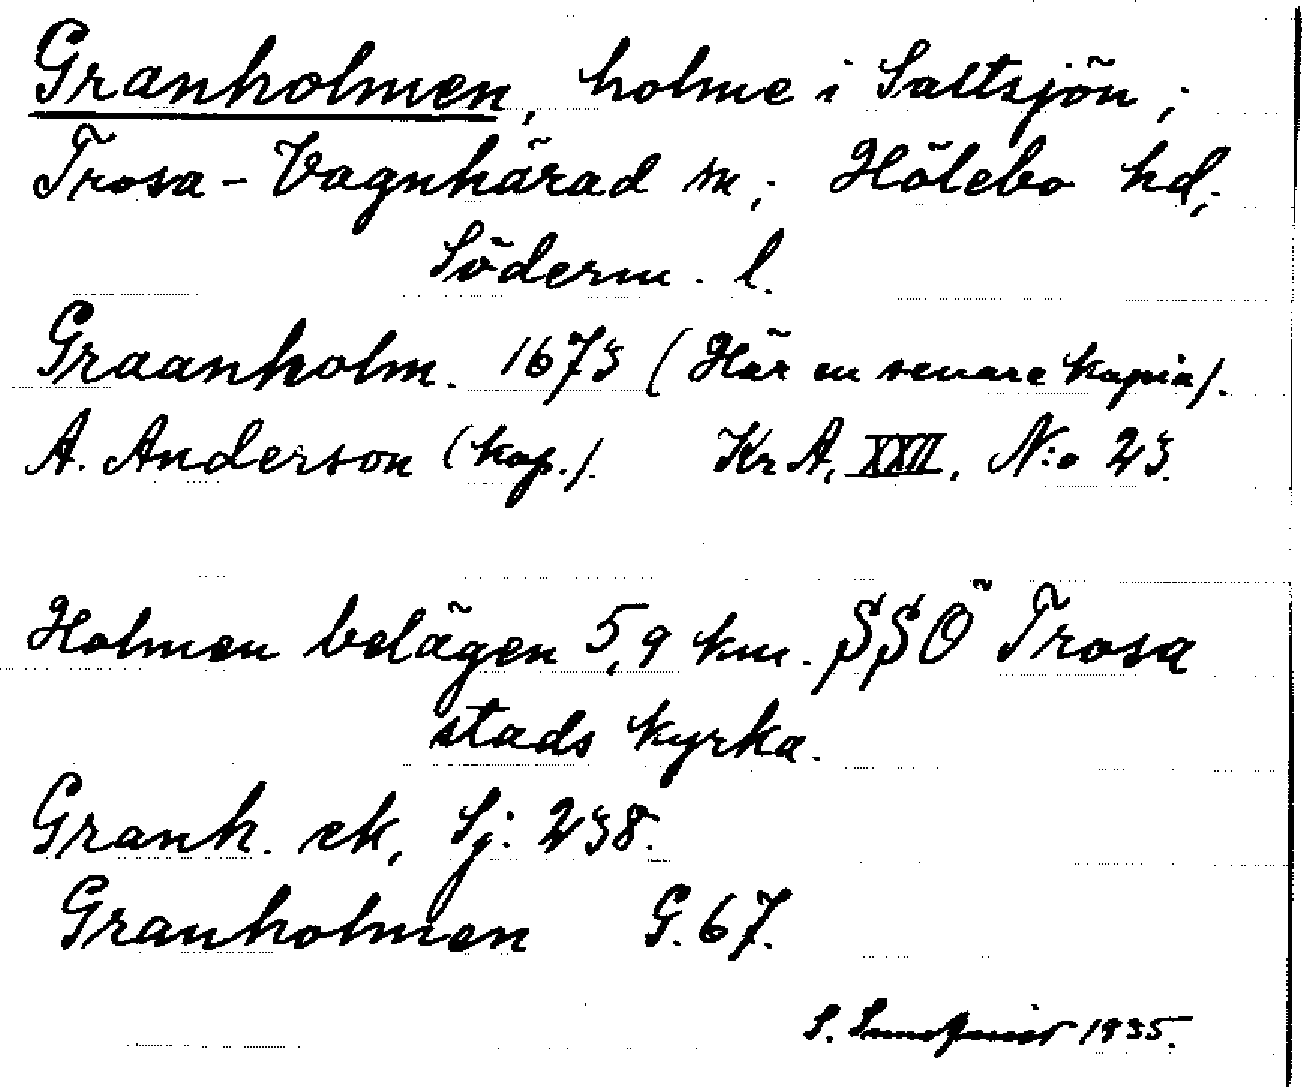 Granholmen, holme i Saltsjön;
Trosa-Vagnhärad sn; Hölebo hd;
Söderm. l.
Graanholm. 1673 (Här en senare kopia).
A. Anderson (kop.). Kr A, XXII, N:o 23.
Holmen belägen 5,9 km. SSÖ Trosa
stads kyrka.
Granh. ek, Sj: 238.
Granholmen G. 67.
S. 1935.